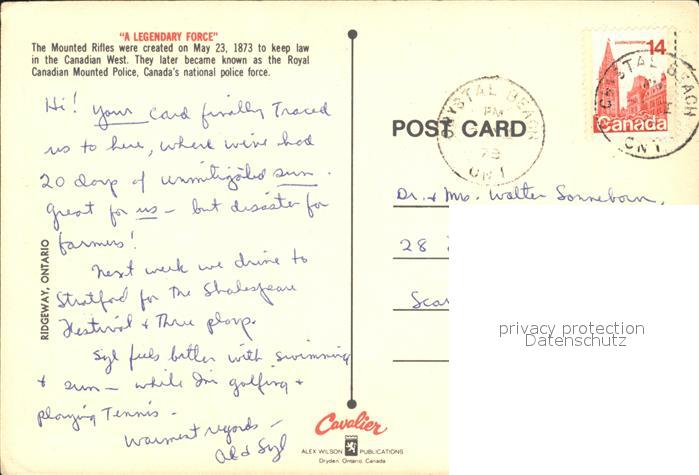 "A LEGENDARY FORCE"
The Mounted Rifles were created on May 23, 1873 to keep law
in the Canadian West. They later became known as the Royal
Canadian Mounted Police, Canada's national police force.
Hi! Your card finally traced
us to here, where we've had
20 days of unmitigated sun.
Great for us – but disaster for
farmers!
Next week we drive to
Stratford for the Shakespeare
Festival & three plays.
Syl feels better with swimming
& sun – while I'm golfing &
playing Tennis.
Warmest regards –
Al & Syl
RIDGEWAY, ONTARIO
CRYSTAL BEACH
PM
78
ONT
postes/postage 14
Canada
CRYSTAL BEACH
PM
ONT
POST CARD
Dr. & Mrs. Walter Sonneborn,
28
Scar
privacy protection
Datenschutz
Cavalier
ALEX WILSON PUBLICATIONS
Dryden, Ontario, Canada